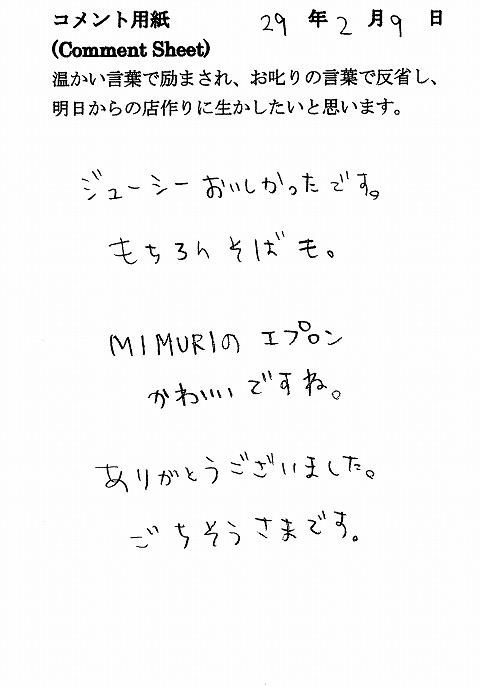 コメント用紙 29 年 2 月 9 日
(Comment Sheet)
温かい言葉で励まされ、お叱りの言葉で反省し、
明日からの店作りに生かしたいと思います。
ジューシーおいしかったです。
もちろんそばも。
MIMURIの エプロン
かわいいですね。
ありがとうございました。
ごちそうさまです。